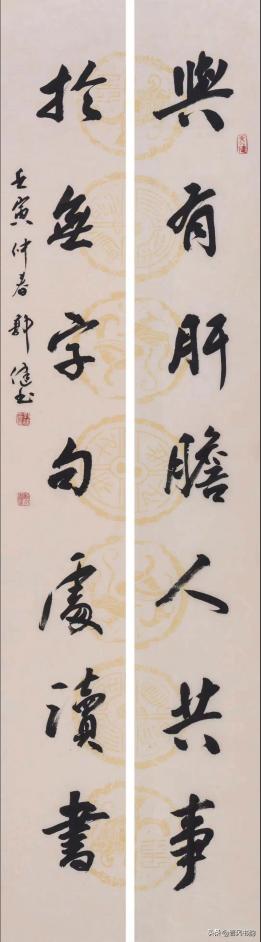 與有肝膽人共事
於無字句處讀書
壬寅仲春郭健書
头条@晋风书韵